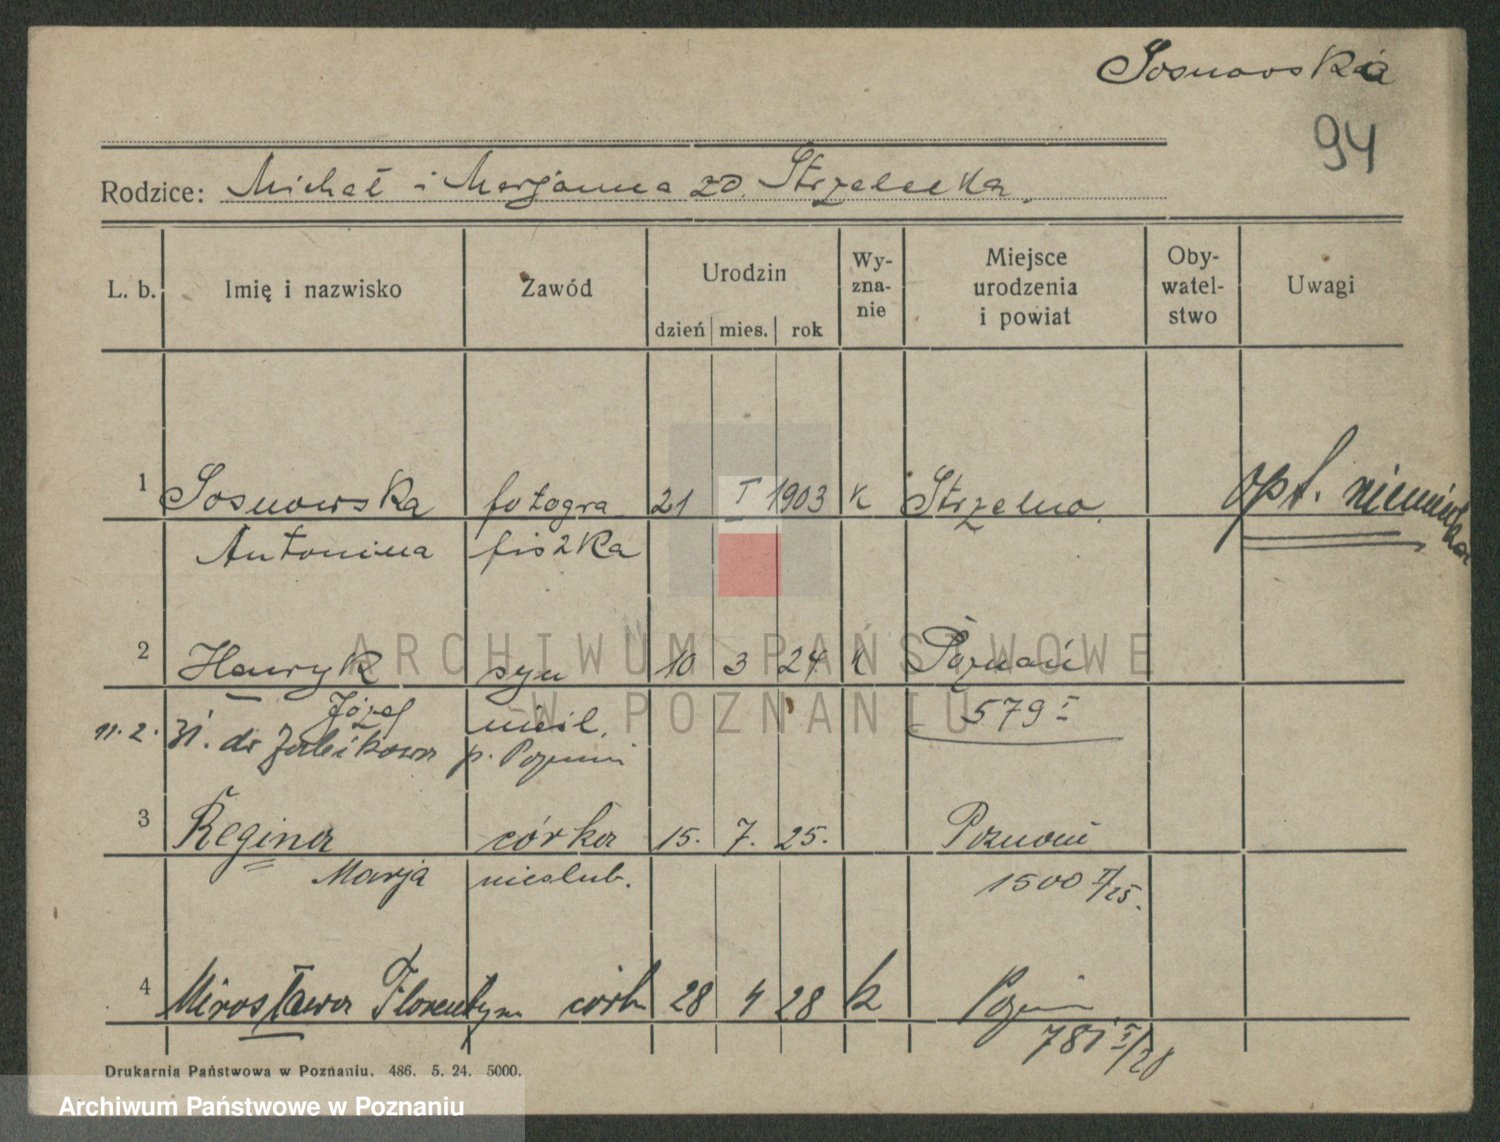 Sosnowska
94
Rodzice: Michał i Marjanna zd. Strzelecka.
L. b. Imię i nazwisko Zawód Urodzin dzień mies. rok Wy-zna-nie Miejsce urodzenia i powiat Oby-watel-stwo Uwagi
1 Sosnowska fotogra 21 I 1903 k Strzelno opt. niemiecka
Antonina fiszka
2 Henryk syn 10 3 24 k Poznań
Józef nieśl. 579 I
11.2.31. do Żabikowa p. Poznań
3 Regina córka 15. 7. 25. Poznań
Marja nieślub. 1500 II/25.
4 Mirosława Florentyna córk 28 4 28 k Pozn
781 I/28
Drukarnia Państwowa w Poznaniu. 486. 5. 24. 5000.
ARCHIWUM PAŃSTWOWE
W POZNANIU
Archiwum Państwowe w Poznaniu